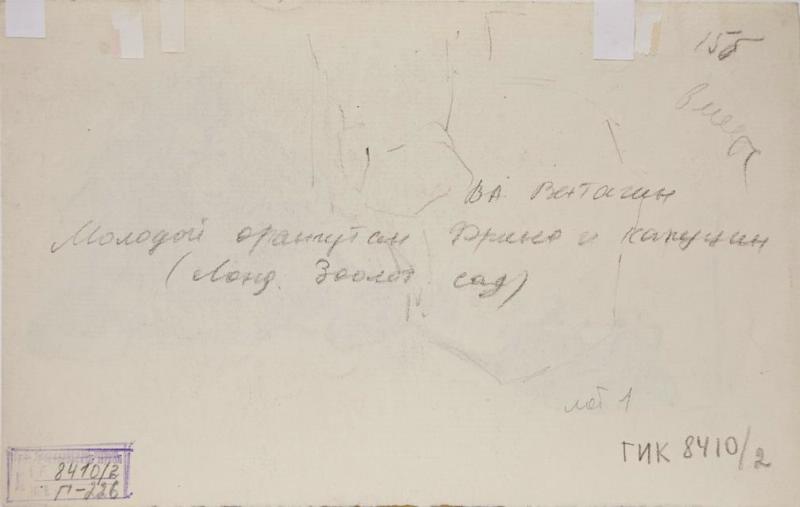 15б
В.А. Ватагин
Молодой орангутан и капуцин
(Лонд. Зоолог сад)
лот 1
ГИК 8410/2
8410/2
Г-226